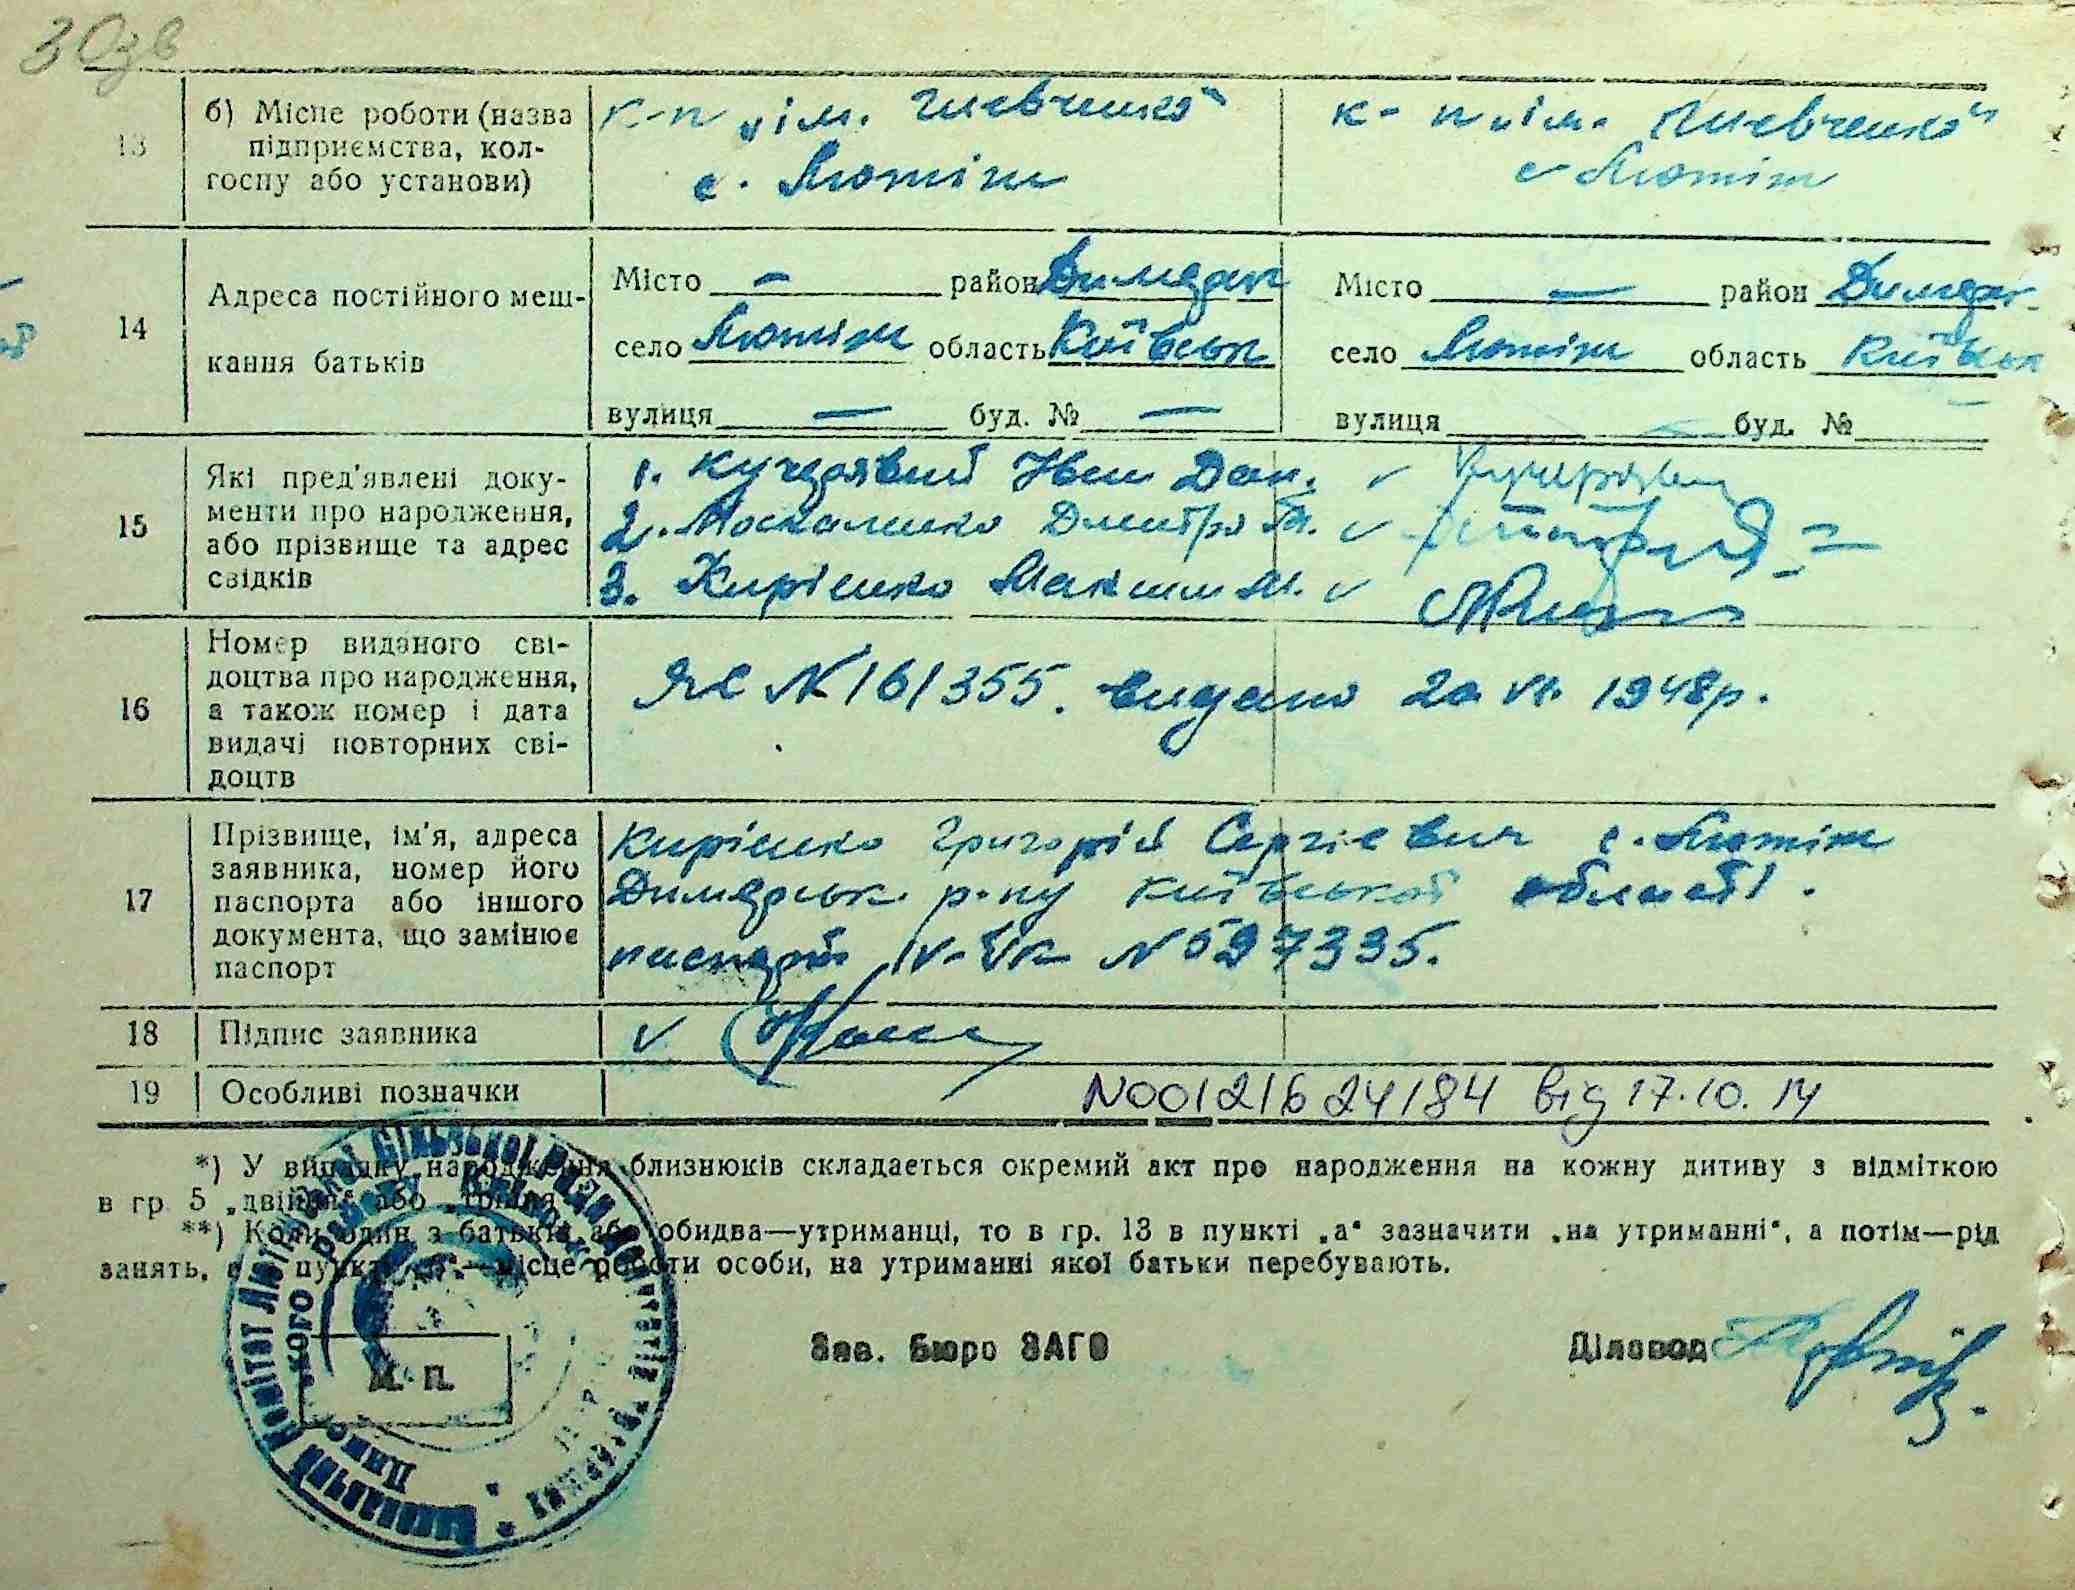 30зв
13 б) Місце роботи (назва підприємства, колгоспу або установи)
к-п „ім. Шевченка“ к-п „ім. Шевченка“
с. Лютіж с. Лютіж
14 Адреса постійного мешкання батьків
Місто — район Димерськ Місто — район Димерськ
село Лютіж область Київськ село Лютіж область Київськ
вулиця — буд. № — вулиця буд. №
15 Які пред'явлені документи про народження, або прізвище та адрес свідків
1. Кучерявий Іван Дан.
2. Москаленко Дмитро
3. Кирієнко Максим М.
16 Номер виданого свідоцтва про народження, а також номер і дата видачі повторних свідоцтв
ЯС N 161355. видано 20 VI. 1948р.
17 Прізвище, ім'я, адреса заявника, номер його паспорта або іншого документа, що замінює паспорт
Кирієнко Григорій Сергієвич с. Лютіж
Димерськ. р-ну Київської області.
паспорт N 597335.
18 Підпис заявника
19 Особливі позначки
N00121624184 від 17.10.14
*) У випадку народження близнюків складається окремий акт про народження на кожну дитину з відміткою
в гр. 5 „двійня“ або „трійня“.
**) Коли один з батьків або обидва—утриманці, то в гр. 13 в пункті „а“ зазначити „на утриманні“, а потім—рід
занять, а в пункті „б“—місце роботи особи, на утриманні якої батьки перебувають.
Зав. бюро ЗАГС Діловод
М. П.
Виконавчий Комітет Лютізької Сільської Ради Депутатів